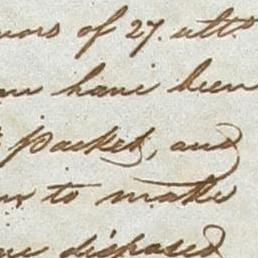 of 27. ulto
have been
packet, and
to make
disposed